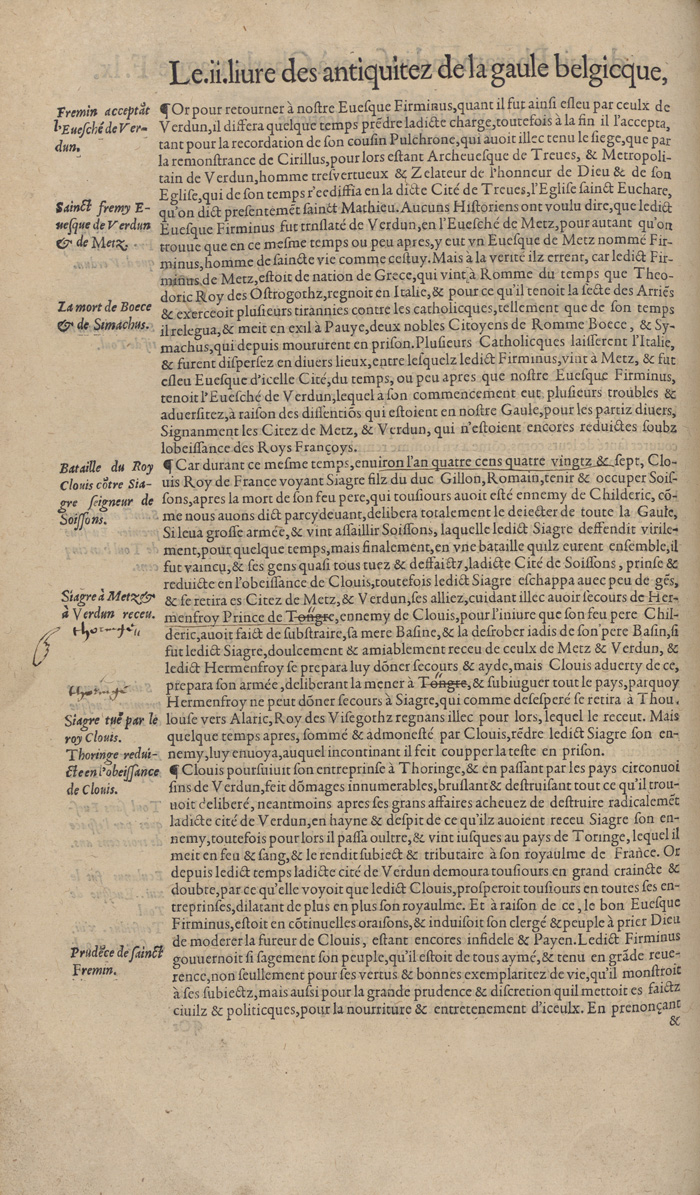 Le.ii.liure des antiquitez de la gaule belgicque,
Fremin acceptāt
l'Euesché de Ver-
dun.
¶Or pour retourner à nostre Euesque Firminus,quant il fut ainsi esleu par ceulx de
Verdun,il differa quelque temps prēdre ladicte charge,toutefois à la fin il l'accepta,
tant pour la recordation de son cousin Pulchrone,qui auoit illec tenu le siege,que par
la remonstrance de Cirillus,pour lors estant Archeuesque de Treues, & Metropoli-
tain de Verdun,homme tresvertueux & Zelateur de l'honneur de Dieu & de son
Eglise,qui de son temps r'eediffia en la dicte Cité de Treues,l'Eglise sainct Euchare,
Sainct fremy E-
uesque de Verdun
& de Metz.
qu'on dict presentemēt sainct Mathieu.Aucuns Historiens ont voulu dire,que ledict
Euesque Firminus fut trnslaté de Verdun,en l'Euesché de Metz,pour autant qu'on
trouue que en ce mesme temps ou peu apres,y eut vn Euesque de Metz nommé Fir-
minus,homme de saincte vie comme cestuy.Mais à la verité ilz errent, car ledict Fir-
minus de Metz,estoit de nation de Grece,qui vint à Romme du temps que Theo-
doric Roy des Ostrogothz,regnoit en Italie,& pour ce qu'il tenoit la secte des Arriēs
La mort de Boece
& de Simachus.
& exerceoit plusieurs tirannies contre les catholicques,tellement que de son temps
il relegua,& meit en exil à Pauye,deux nobles Citoyens de Romme Boece , & Sy-
machus,qui depuis moururent en prison.Plusieurs Catholicques laisserent l'Italie,
& furent dispersez en diuers lieux,entre lesquelz ledict Firminus,vint à Metz, & fut
esleu Euesque d'icelle Cité,du temps, ou peu apres que nostre Euesque Firminus,
tenoit l'Euesché de Verdun,lequel a son commencement eut plusieurs troubles &
aduersitez,à raison des dissentiōs qui estoient en nostre Gaule,pour les partiz diuers,
Signanment les Citez de Metz, & Verdun, qui n'estoient encores reduictes soubz
lobeissance des Roys Françoys.
Bataille du Roy
Clouis cōtre Sia-
gre seigneur de
Soissons.
¶ Car durant ce mesme temps,enuiron l'an quatre cens quatre vingtz & sept, Clo-
uis Roy de France voyant Siagre filz du duc Gillon,Romain,tenir & occuper Sois-
sons,apres la mort de son feu pere,qui tousiours auoit esté ennemy de Childeric, cō-
me nous auons dict parcydeuant,delibera totalement le deiecter de toute la Gaule,
Si leua grosse armée,& vint assaillir Soissons, laquelle ledict Siagre deffendit virile-
ment,pour quelque temps,mais finalement,en vne bataille quilz eurent ensemble,il
fut vaincu,& ses gens quasi tous tuez & deffaictz,ladicte Cité de Soissons , prinse &
reduicte en l'obeissance de Clouis,toutefois ledict Siagre eschappa auec peu de gēs,
Siagre à Metz&
à Verdun receu.
& se retira es Citez de Metz,& Verdun,ses alliez,cuidant illec auoir secours de Her-
menfroy Prince de Tongre,ennemy de Clouis,pour l'iniure que son feu pere Chil-
deric,auoit faict de substraire,sa mere Basine,& la desrober iadis de son pere Basin,si
fut ledict Siagre,doulcement & amiablement receu de ceulx de Metz & Verdun, &
ledict Hermenfroy se prepara luy dōner secours & ayde,mais Clouis aduerty de ce,
prepara son armée,deliberant la mener à Tongre,& subiuguer tout le pays,parquoy
Hermenfroy ne peut dōner secours à Siagre,qui comme desesperé se retira à Thou.
Siagre tué par le
roy Clouis.
Thoringe redui-
cte en l'obeissance
de Clouis.
louse vers Alaric,Roy des Visegothz regnans illec pour lors, lequel le receut. Mais
quelque temps apres, sommé & admonesté par Clouis,rēdre ledict Siagre son en-
nemy,luy enuoya,auquel incontinant il feit coupper la teste en prison.
¶ Clouis poursuiuit son entreprinse à Thoringe,& en passant par les pays circonuoi
sins de Verdun,feit dōmages innumerables,bruslant& destruisant tout ce qu'il trou-
uoit deliberé, neantmoins apres ses grans affaires acheuez de destruire radicalemēt
ladicte cité de Verdun,en hayne & despit de ce qu'ilz auoient receu Siagre son en-
nemy,toutefois pour lors il passa oultre,& vint iusques au pays de Toringe,lequel il
meit en feu & sang,& le rendit subiect & tributaire à son royaulme de France. Or
depuis ledict temps ladicte cité de Verdun demoura tousiours en grand craincte &
doubte,par ce qu'elle voyoit que ledict Clouis,prosperoit tousiours en toutes ses en-
treprinses,dilatant de plus en plus son royaulme. Et à raison de ce, le bon Euesque
Firminus,estoit en cōtinuelles oraisons,& induisoit son clergé &peuple à prier Dieu
Prudēce de sainct
Fremin.
de moderer la fureur de Clouis, estant encores infidele & Payen.Ledict Firminus
gouuernoit si sagement son peuple,qu'il estoit de tous aymé,& tenu en grāde reue-
rence,non seullement pour ses vertus & bonnes exemplaritez de vie,qu'il monstroit
à ses subiectz,mais aussi pour la grande prudence & discretion quil mettoit es faictz
ciuilz & politicques,pour la nourriture & entretenement d'iceulx. En prenonçant
&